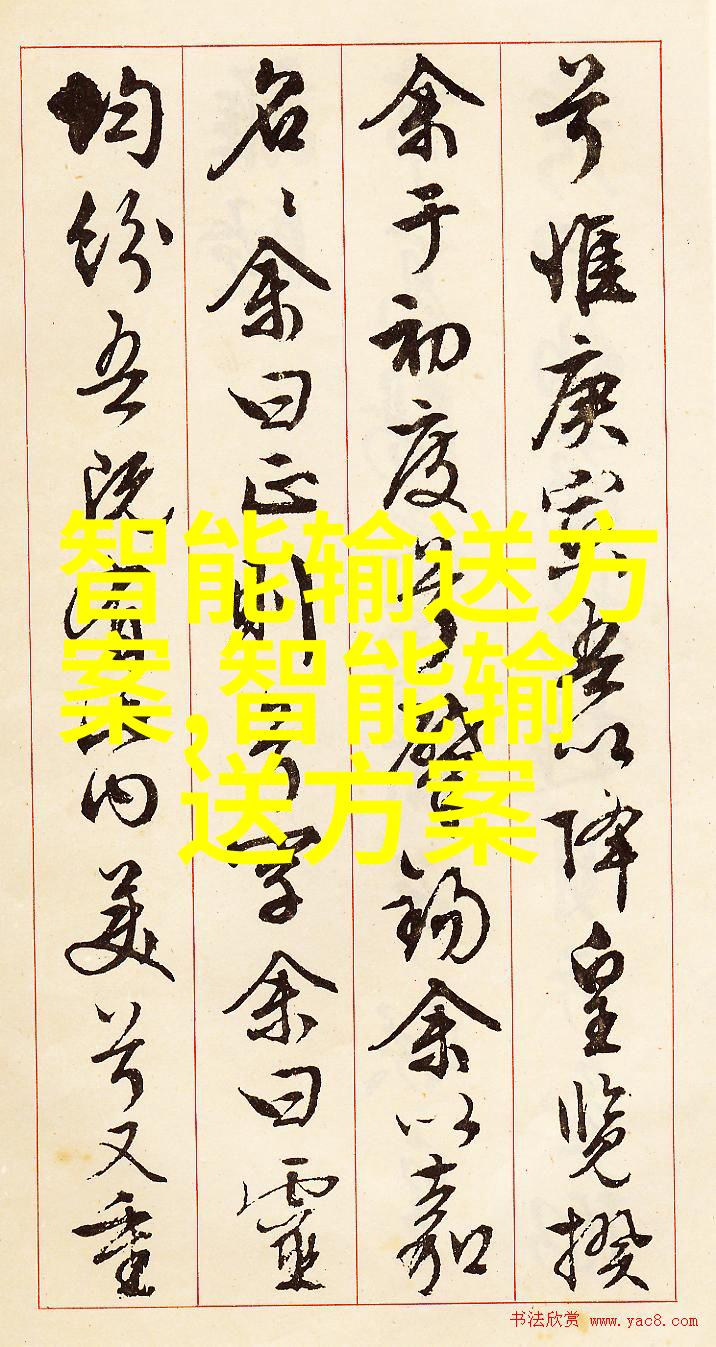 兮惟庚寅吾以降皇覽揆
余于初度兮肇錫余以嘉
名〻余曰正則兮字余曰靈
均紛吾既有此內美兮又重
智能输送方
案,智能输
送方案
书法欣赏 www.yac8.com